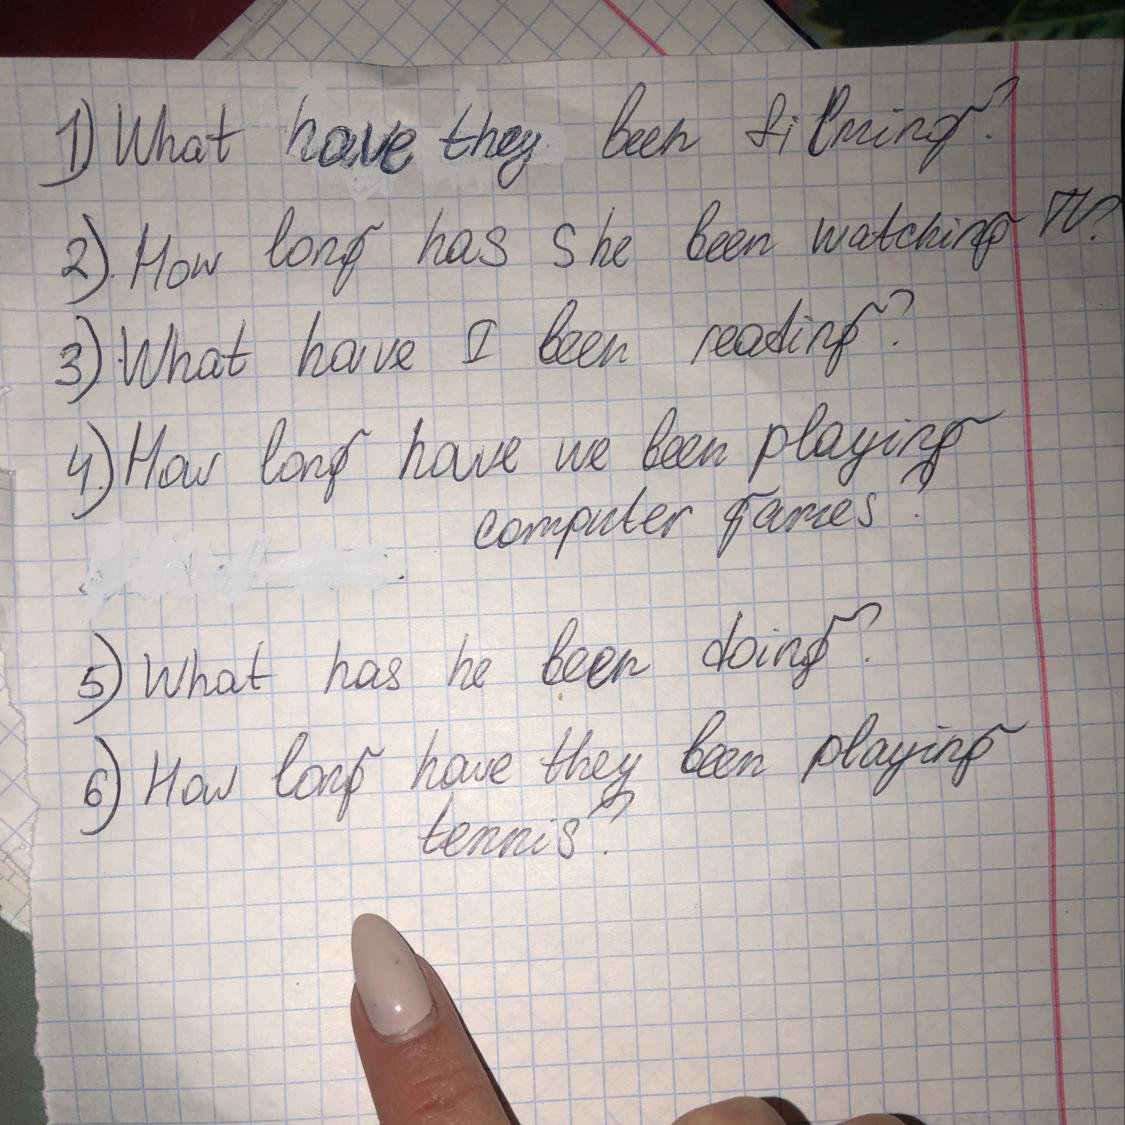 1) What have they been filming?
2). How long has she been watching TV?
3). What have I been reading?
4) How long have we been playing
computer games?
5) What has he been doing?
6) How long have they been playing
tennis?